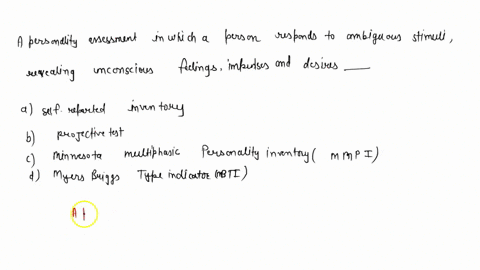 A personality assessment in which a person responds to ambiguous stimuli,
revealing unconscious feelings, impulses and desires ___
a) self-reported inventory
b) projective test
c) Minnesota multiphasic Personality inventory (MMPI)
d) Myers Briggs Type indicator (MBTI)
A